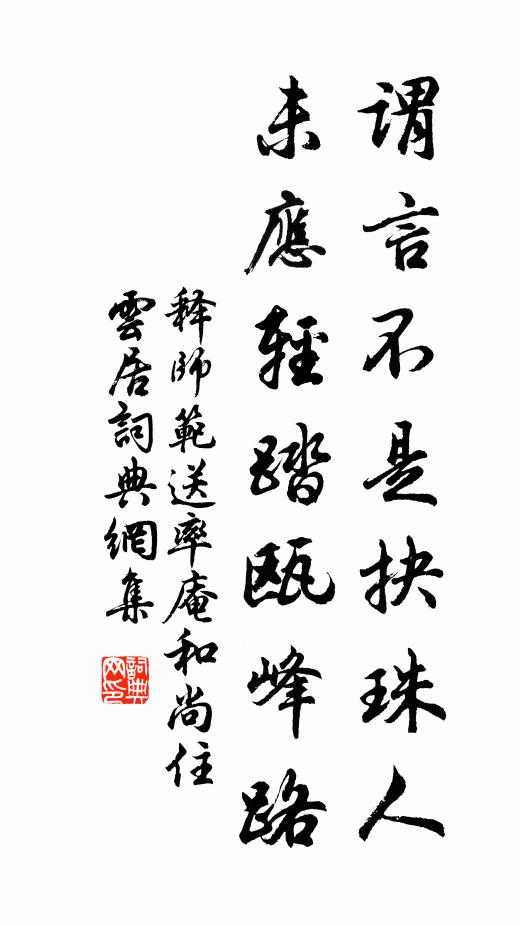 謂言不是抉珠人
未應輕踏甌峰路
释師範送率庵和尚住
雲居詞典網集
詞典网印